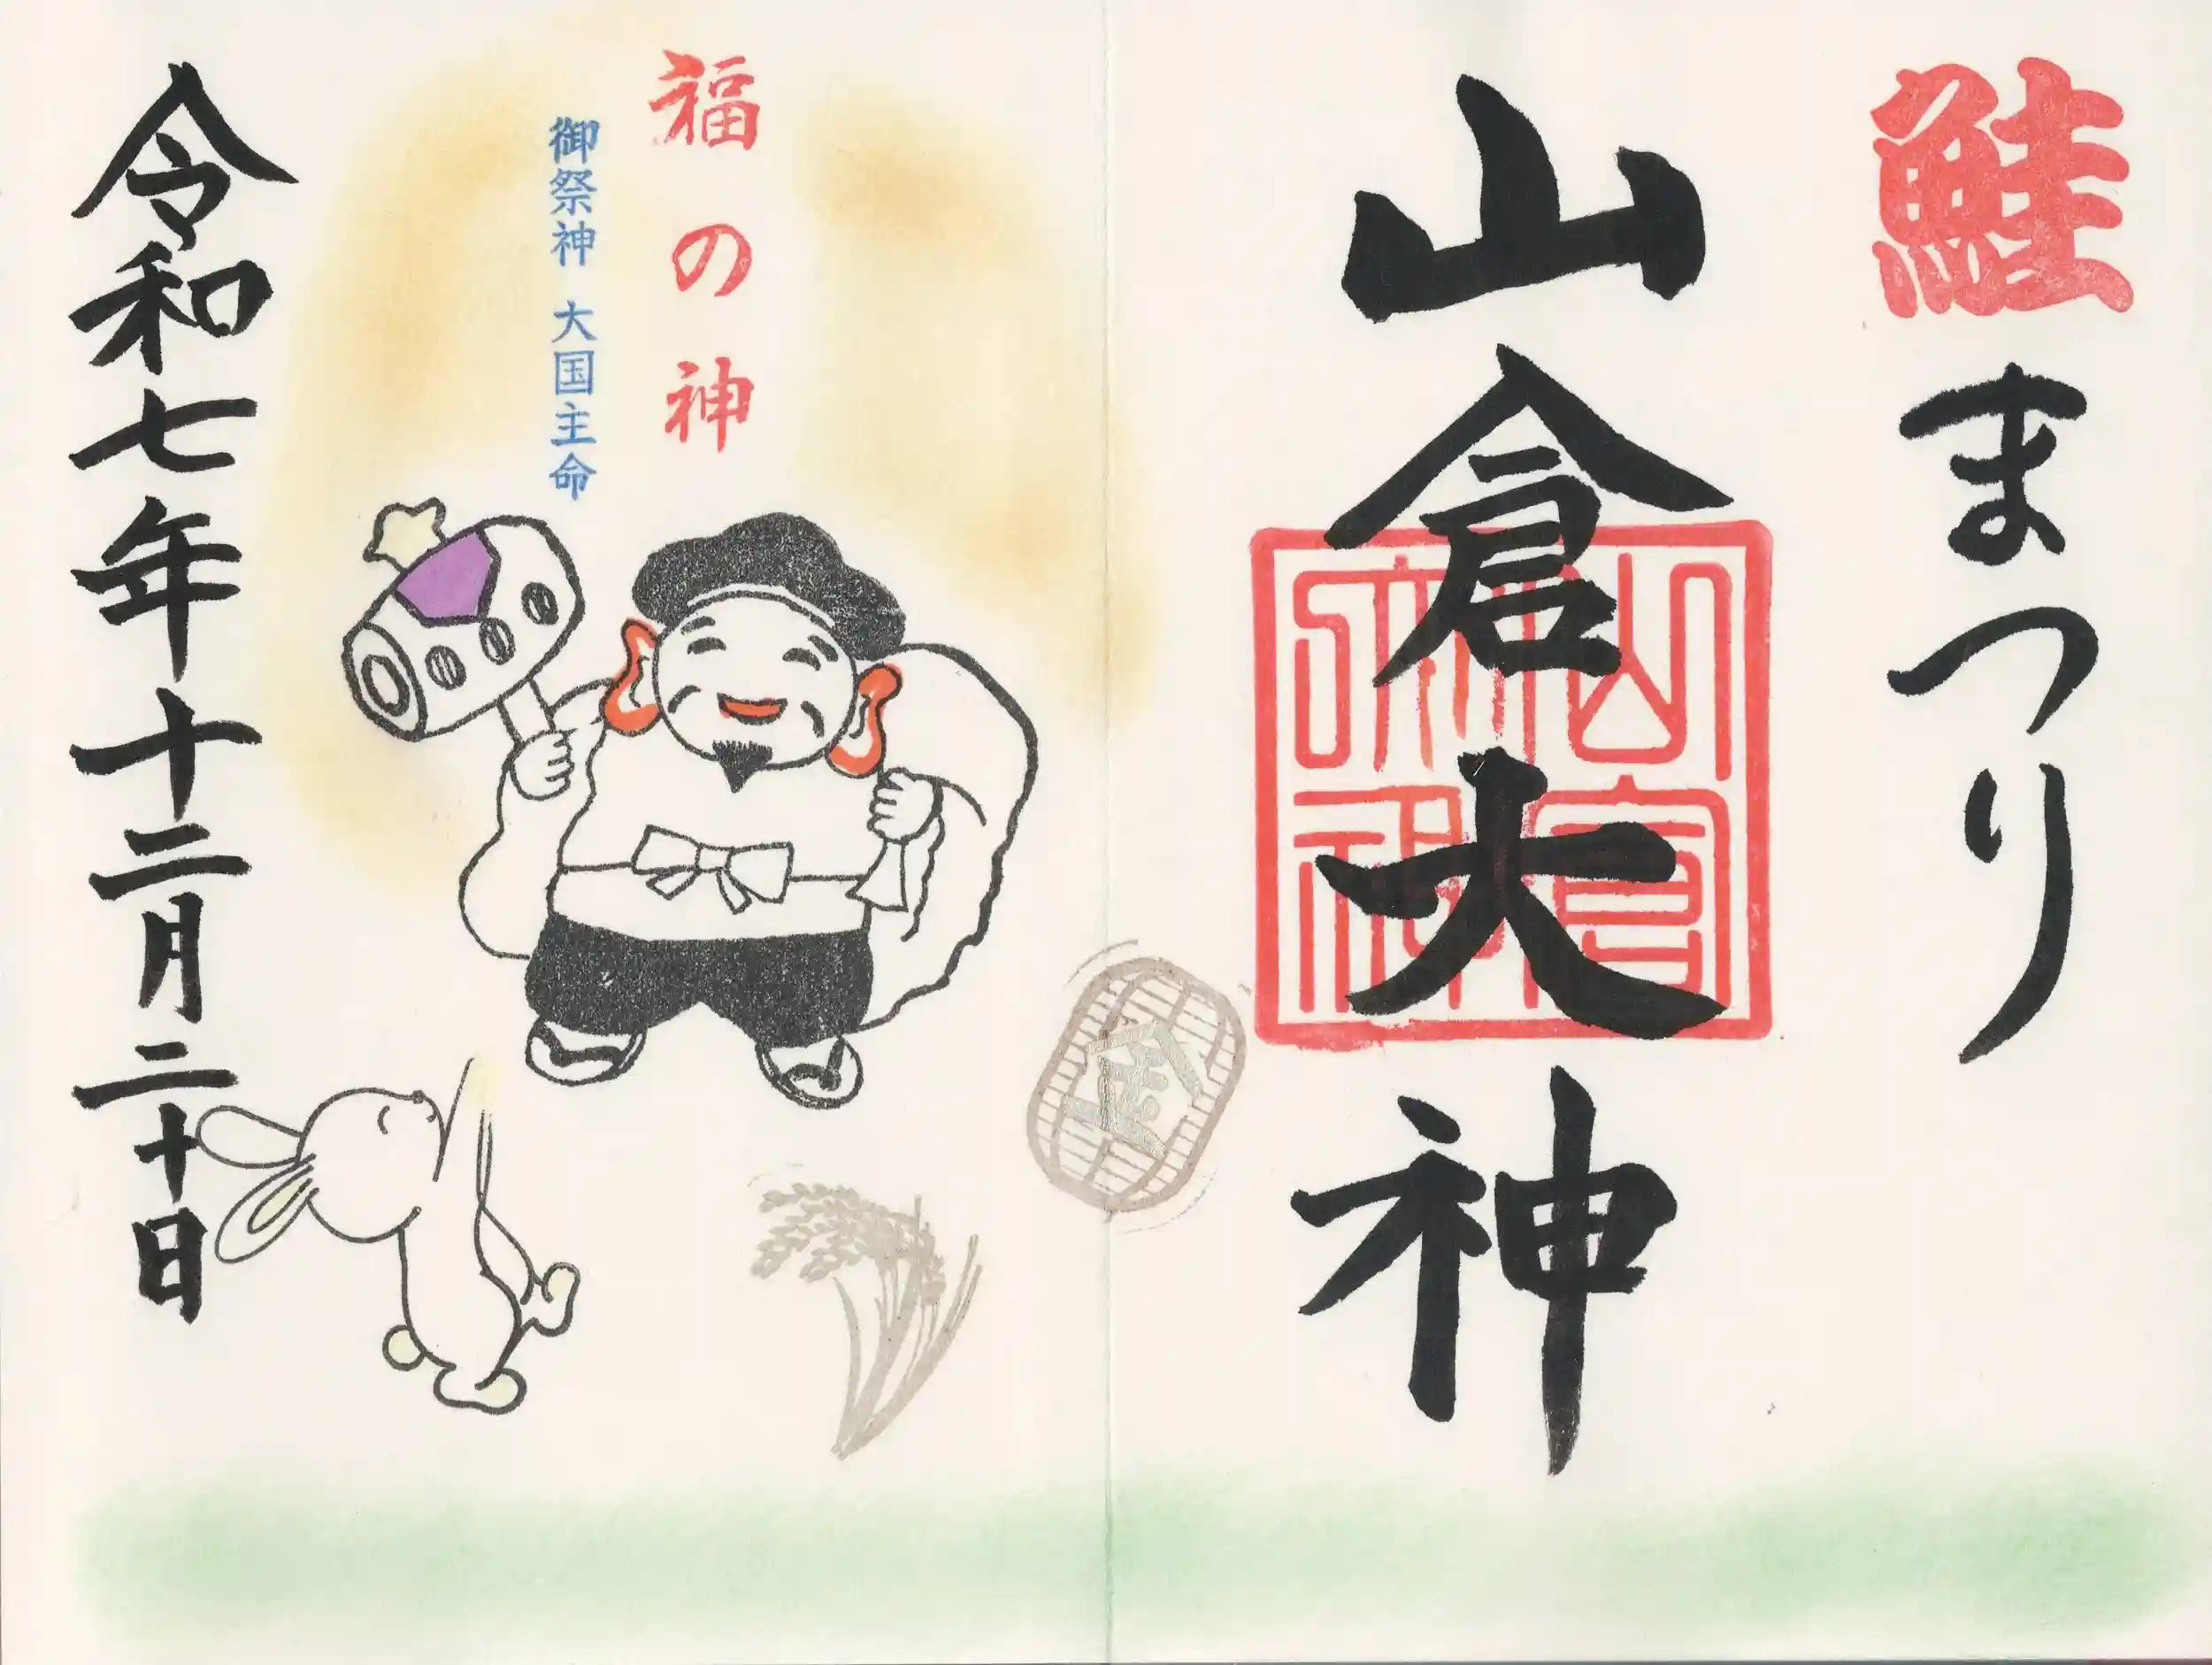 鮭まつり
山倉大神
福の神
御祭神 大国主命
金
令和七年十二月二十日